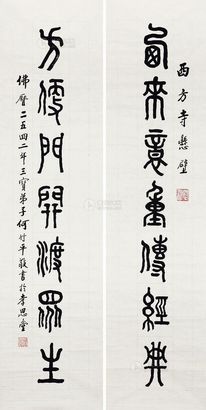 西方寺懸壁
西來意重傳經典
方便門開渡眾生
佛曆二五四二年三寶弟子何竹平敬書於孝思堂